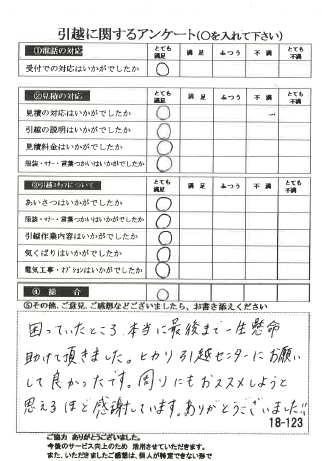 引越に関するアンケート(〇を入れて下さい)
①電話の対応 とても満足 満足 ふつう 不満 とても不満
受付での対応はいかがでしたか
②見積の対応 とても満足 満足 ふつう 不満 とても不満
見積の対応はいかがでしたか
引越の説明はいかがでしたか
見積料金はいかがでしたか
服装・マナー・言葉つかいはいかがでしたか
③引越スタッフについて とても満足 満足 ふつう 不満 とても不満
あいさつはいかがでしたか
服装・マナー・言葉つかいはいかがでしたか
引越作業内容はいかがでしたか
気くばりはいかがでしたか
電気工事・オプションはいかがでしたか
④ 総合
⑤その他、ご意見、ご感想などございましたら、お書き添えください
困っていたところ、本当に最後まで一生懸命
助けて頂きました。ヒカリ引越センターにお願い
して良かったです。周りにもおススメしようと
思えるほど感謝しています。ありがとうございました!!
18-123
ご協力 ありがとうございました。
今後のサービス向上のため 活用させていただきます。
また、いただきましたご感想は、個人が特定できない形で